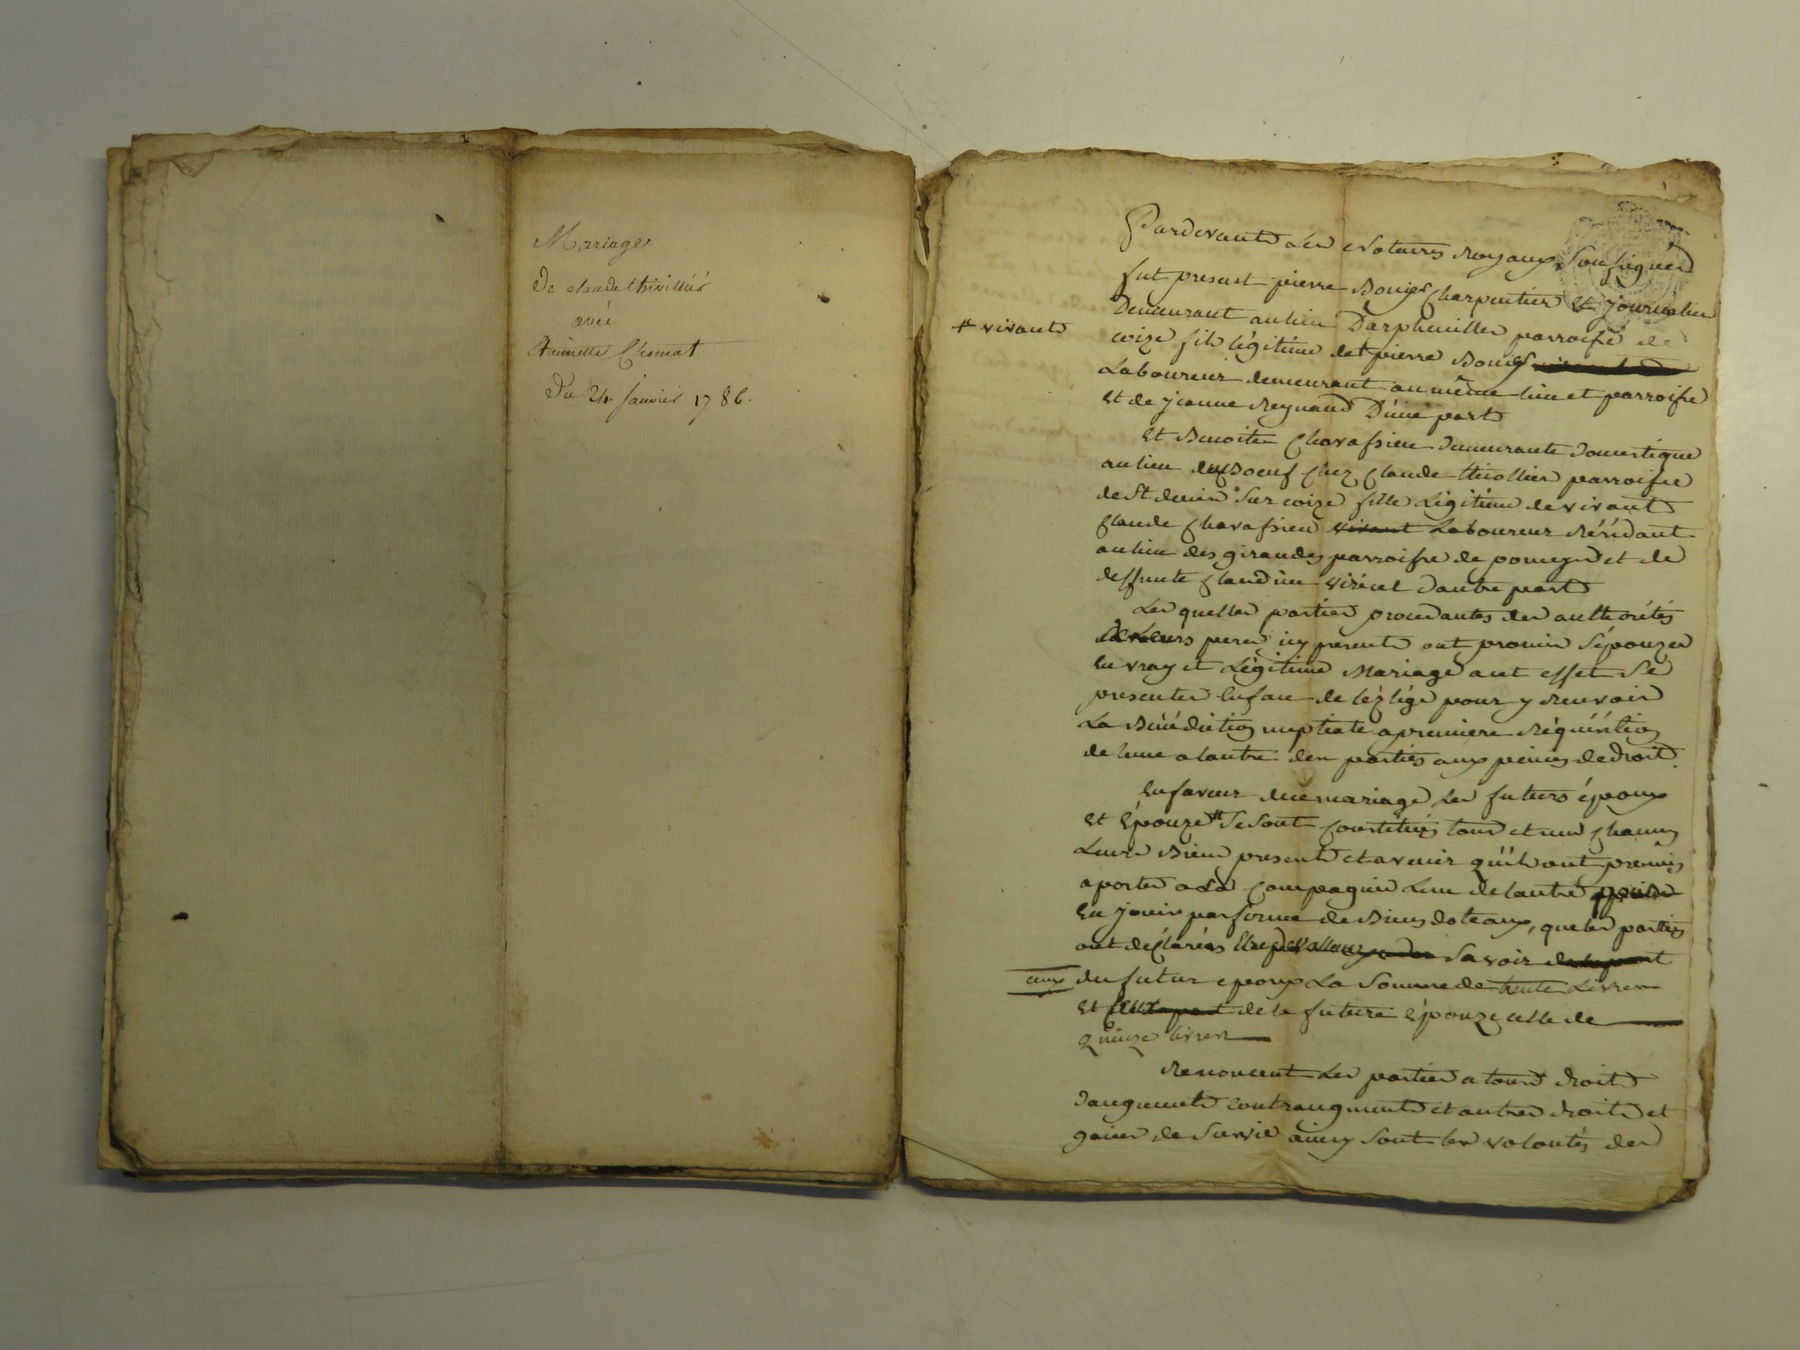 Mariage
De claude thivillier
avec
Anthoinette Chomat
Du 24. janvier 1786.
Pardevant Les Notaires Royaux Soussignés
fut present pierre Bouige Charpentier et journalier
Demeurant au lieu Darpheuille parroisse de
# vivant
coize fils légitime de # pierre Bouige
Laboureur demeurant au même lieu et parroisse
et de jeanne Reynaud D'une part
Et Benoite Chavassieu demeurante domestique
au lieu du Boeuf chez Claude thiollier parroisse
de St denis Sur coize fille Légitime de vivant
Claude Chavassieu vivant Laboureur Résidant
au lieu des girandes parroisse de pomeys et de
deffunte Claudine viricel d'autre part
Les quelles parties procedantes des authorités
De Leurs peres icy presents ont promis S'épouzer
en vray et Légitime Mariage a cet effet Se
presenter en face de l'églize pour y recevoir
La Bénédiction nuptiale a premiere Réquisition
de l'une a l'autre des parties aux peines de droit.
En faveur du mariage Les futurs époux
et Épouze # Se sont Constitués tous et uns chacuns
Leurs Biens presents et avenir qu'ils ont promis
aporter a La Compagnie L'un de l'autre
en jouir par forme de Biens doteaux, que les parties
ont déclarées Savoir de la part
ceux du futur epoux La Somme de trente Livres
et ceux de la future épouze celle de
quinze livres
Renoncent Les parties a tous droits
d'augments contraugments et autres droits et
gains de Survie ainsy Sont les volontés des